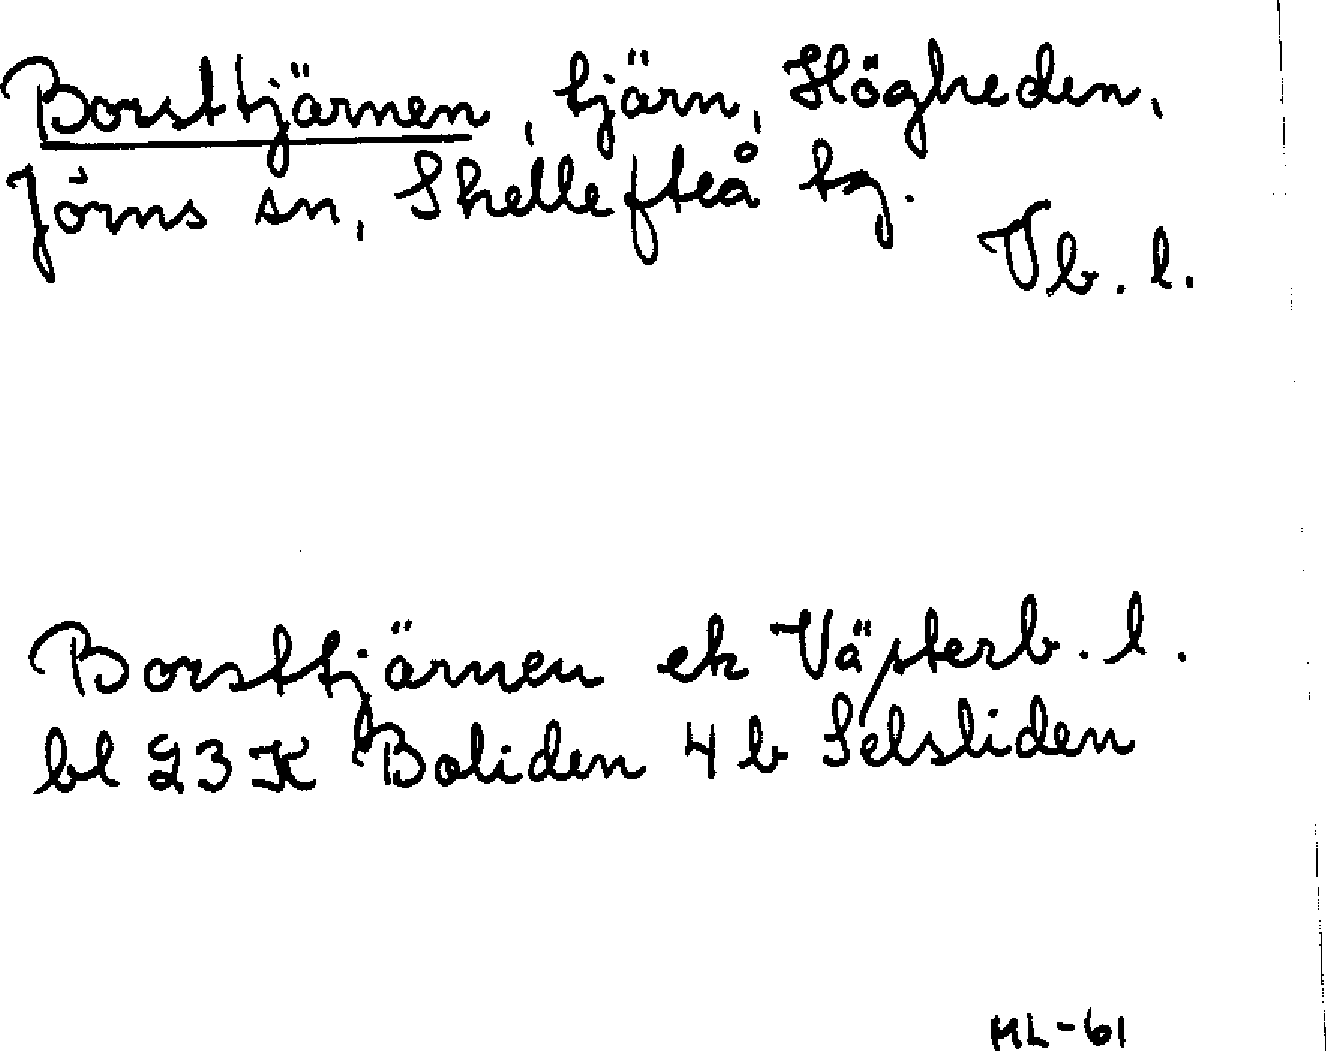 Borsttjärnen, tjärn, Högheden,
Jörns sn, Skellefteå tg.
Vb. l.
Borsttjärnen ek Västerb. l.
bl 23 K Boliden 4 b Selsliden
ML-61